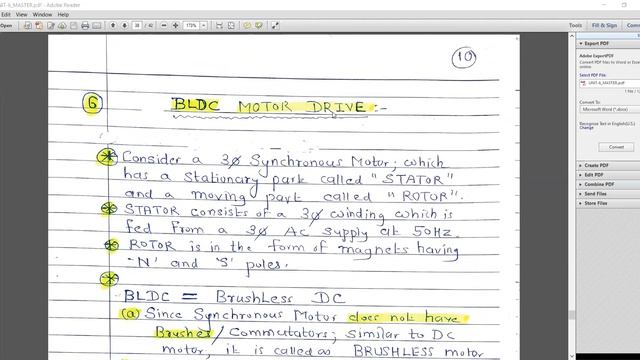 UNIT-6_MASTER.pdf - Adobe Reader
Open
38 / 42
173%
Tools
Fill & Sign
Comment
10
6 BLDC MOTOR DRIVE :-
* Consider a 3Ø Synchronous Motor; which
has a stationary park called "STATOR"
and a moving part called "ROTOR".
* STATOR consists of a 3Ø winding which is
fed from a 3Ø AC supply at 50Hz.
* ROTOR is in the form of magnets having
'N' and 'S' poles.
*
BLDC = Brushless DC
(a) Since Synchronous Motor does not have
Brushes / Commutators; similar to DC
motor, it is called as BRUSHLESS motor
Export PDF
Adobe ExportPDF
Convert PDF files to Word or Excel
online.
Select PDF File:
UNIT-6_MASTER.pdf
1 file /
Convert To:
Microsoft Word (*.docx)
Recognize Text in English(U.S.)
Change
Convert
Create PDF
Edit PDF
Combine PDF
Send Files
Store Files